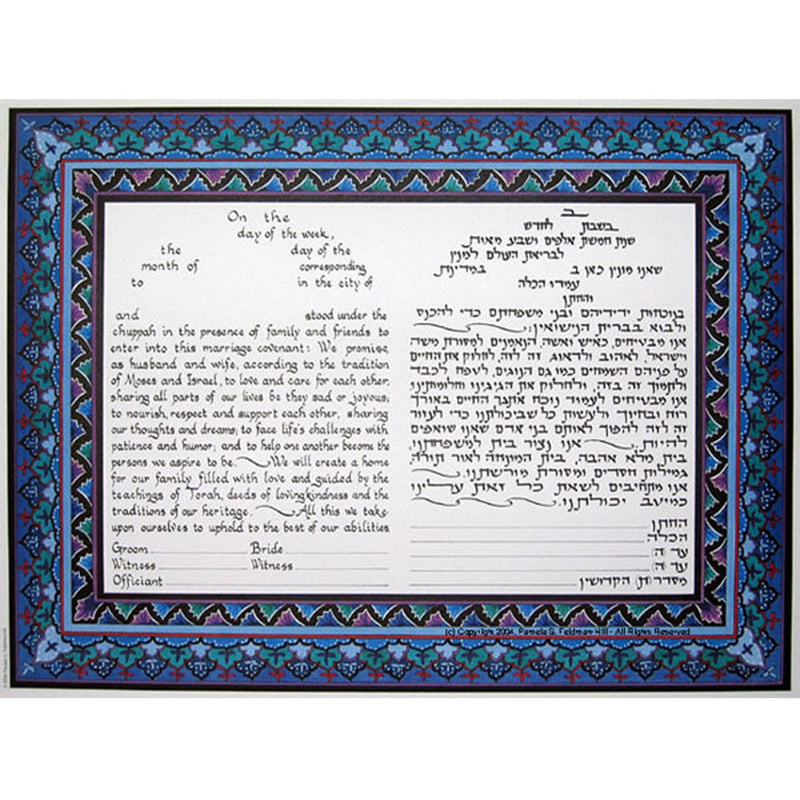 On the
day of the week,
the day of the
month of corresponding
to in the city of
and stood under the
chuppah in the presence of family and friends to
enter into this marriage covenant: We promise,
as husband and wife, according to the tradition
of Moses and Israel, to love and care for each other;
sharing all parts of our lives be they sad or joyous;
to nourish, respect and support each other, sharing
our thoughts and dreams; to face life's challenges with
patience and humor; and to help one another become the
persons we aspire to be. We will create a home
for our family filled with love and guided by the
teachings of Torah, deeds of lovingkindness and the
traditions of our heritage. All this we take
upon ourselves to uphold to the best of our abilities
Groom Bride
Witness Witness
Officiant
ב
בשבת לחדש
שנת חמשת אלפים ושבע מאות
לבריאת העולם למנין
שאנו מונין כאן ב במדינת
עמדו הכלה
והחתן
בנוכחות ידידיהם ובני משפחתם כדי להכנס
ולבוא בברית הנישואין:
אנו מבטיחים, כאיש ואשה, הנאמנים למסורת משה
וישראל, לאהוב ולדאוג זה לזה, לחלוק את החיים
על פניהם השמחים כמו גם העוגים, לטפח לכבד
ולתמוך זה בזה, ולחלוק את הגיגינו וחלומותינו
אנו מבטיחים לעמוד נוכח אתגר החיים באורך
רוח ובחיוך ולעשות כל שביכולתנו כדי לעזור
זה לזה להפוך לאותם בני אדם שאנו שואפים
להיות. אנו ניצור בית למשפחתנו,
בית מלא אהבה, בית המונחה לאור תורה,
גמילות חסדים ומסורת מורשתנו.
אנו מתחיבים לשאת כל זאת עלינו
כמיטב יכולתנו.
החתן
הכלה
עד (ה)
עד (ה)
מסדר(ת) הקדושין
(c) Copyright 2004, Pamela S. Feldman-Hill - All Rights Reserved